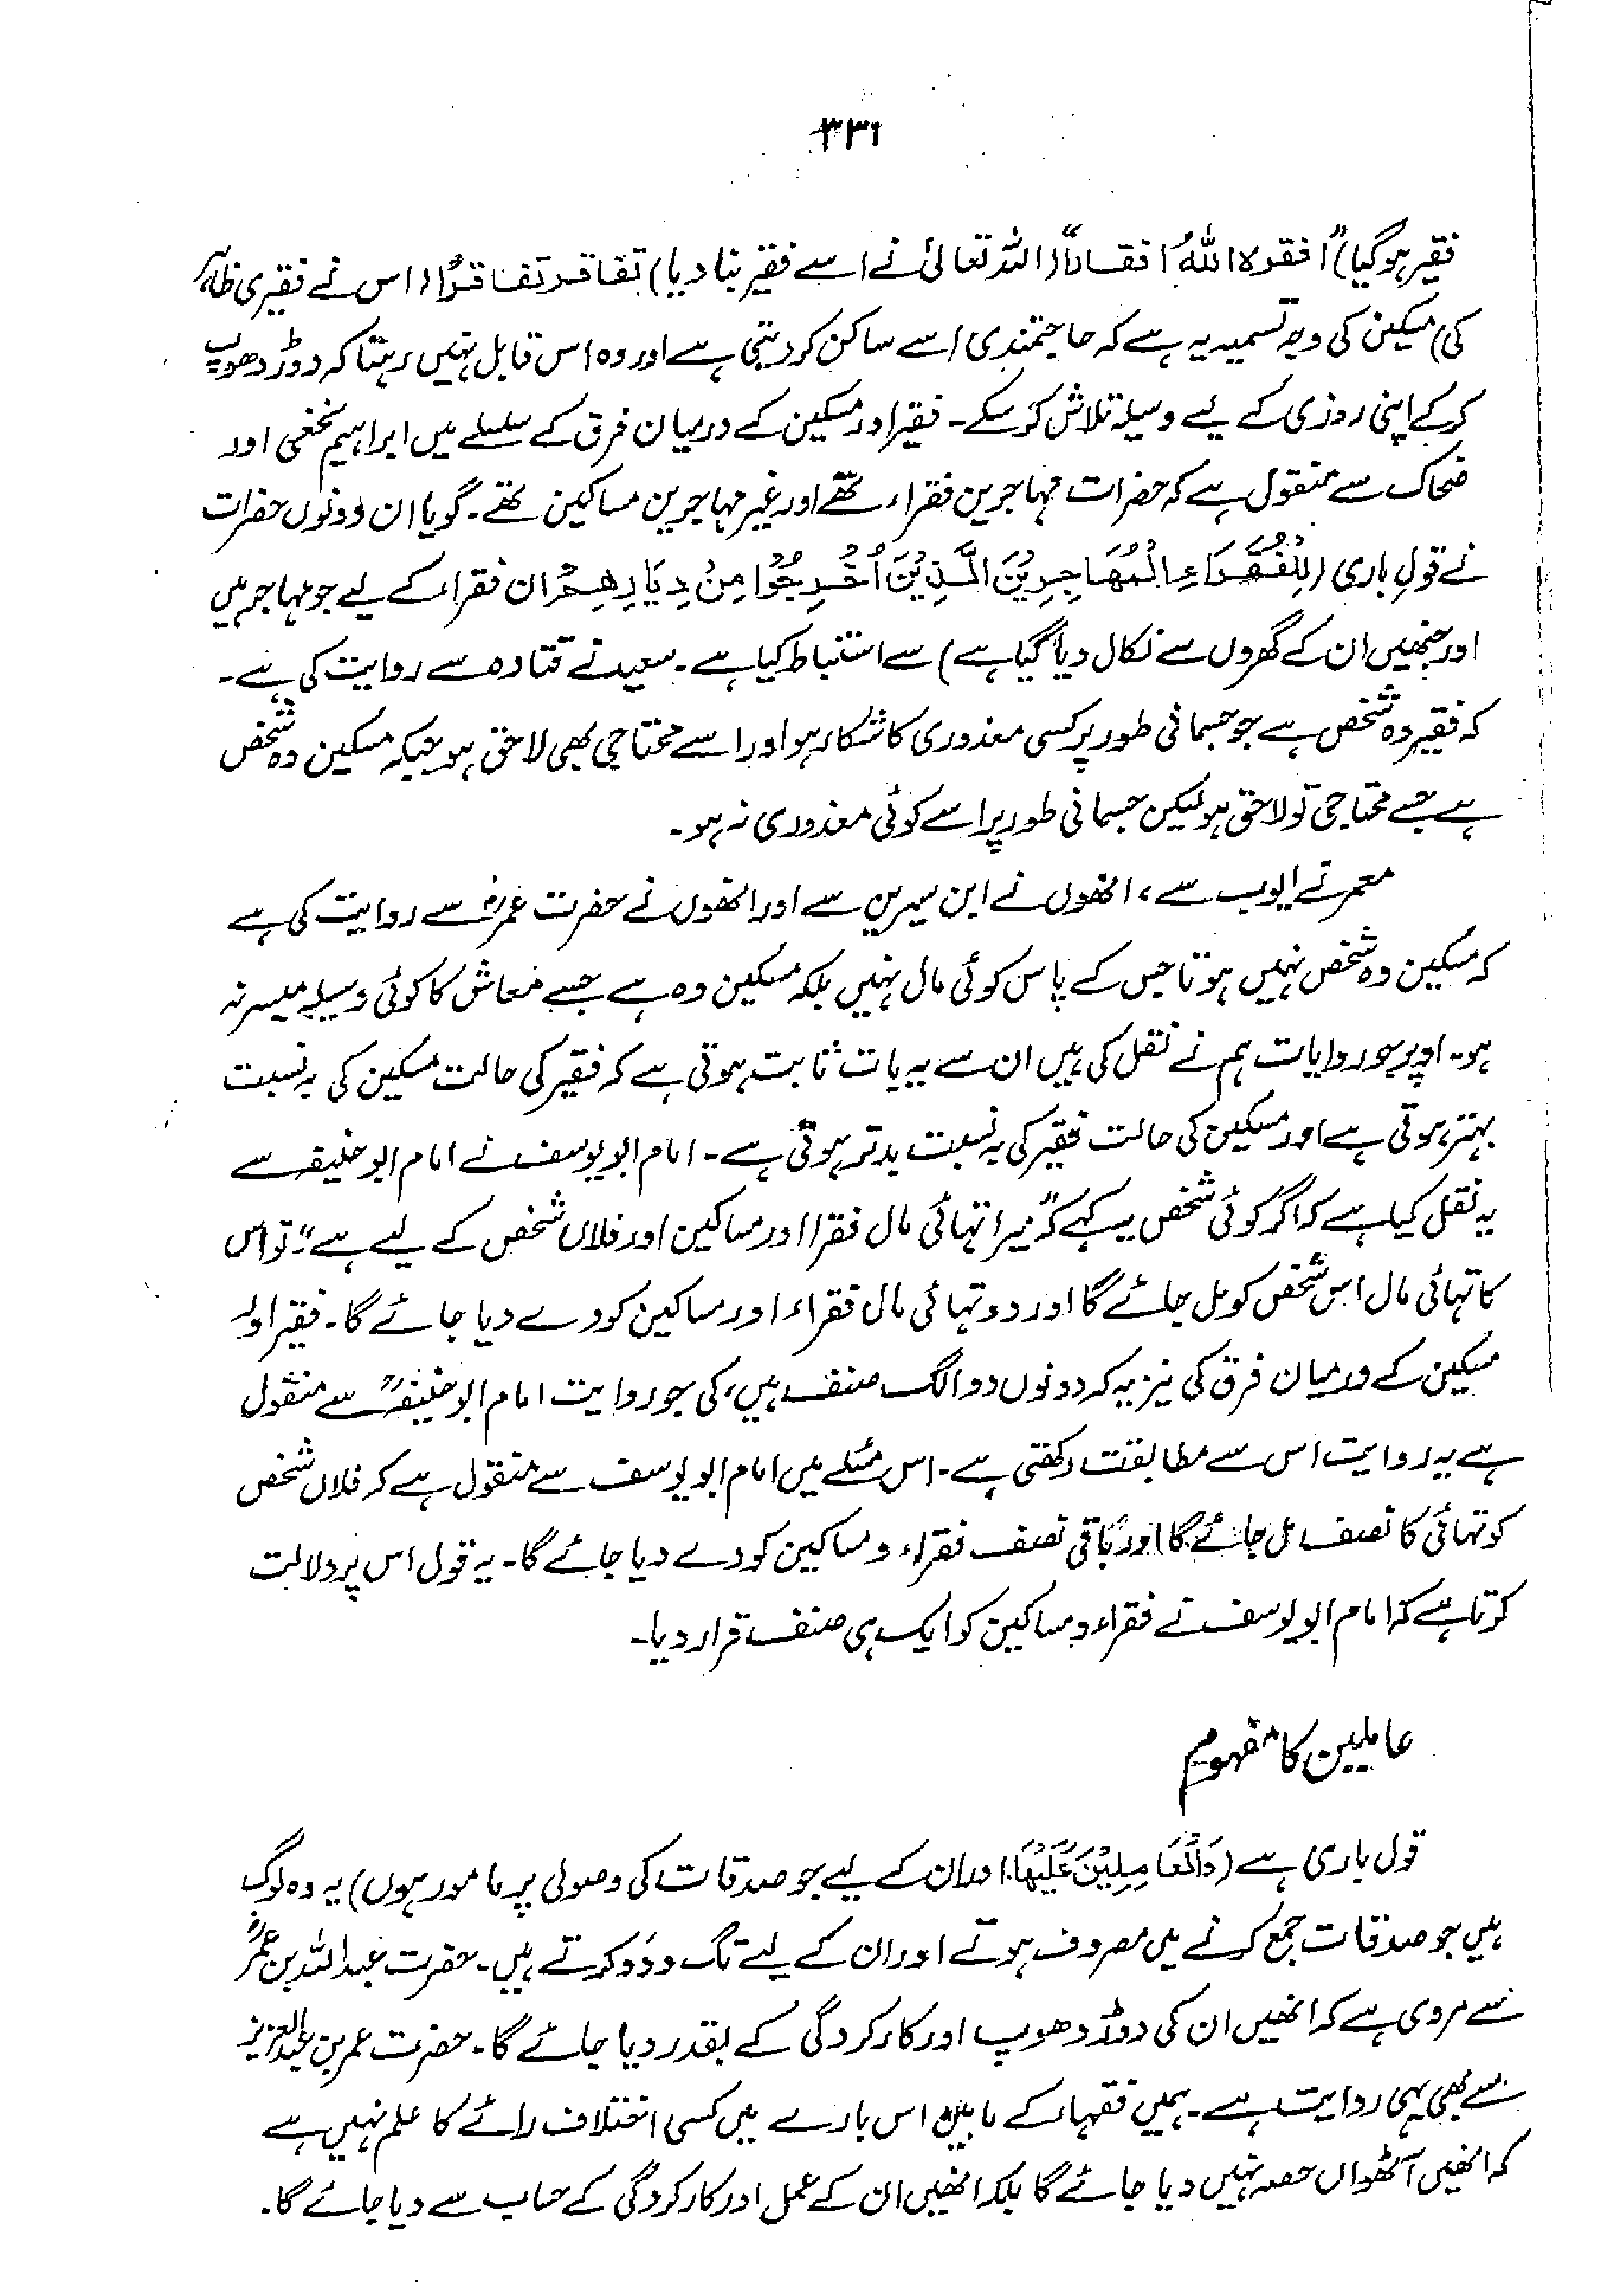 ۳۳۱
فقیر ہوگیا)" افقرہ اللہُ افقاراً (اللہ تعالیٰ نے اسے فقیر بنا دیا) تفاقر تفاقرًا (اس نے فقیری ظاہر
کی) مسکین کی وجہ تسمیہ یہ ہے کہ حاجتمندی اسے ساکن کر دیتی ہے اور وہ اس قابل نہیں رہتا کہ دوڑ دھوپ
کر کے اپنی روزی کے لیے وسیلہ تلاش کر سکے۔ فقیر اور مسکین کے درمیان فرق کے سلسلے میں ابراہیم نخعی اور
ضحاک سے منقول ہے کہ حضرات مہاجرین فقراء تھے اور غیر مہاجرین مساکین تھے۔ گویا ان دونوں حضرات
نے قولِ باری (لِلْفُقَرَاءِ الْمُهَاجِرِيْنَ الَّذِيْنَ اُخْرِجُوْا مِنْ دِيَارِهِمْ ان فقراء کے لیے جو مہاجر ہیں
اور جنھیں ان کے گھروں سے نکال دیا گیا ہے) سے استنباط کیا ہے۔ سعید نے قتادہ سے روایت کی ہے۔
کہ فقیر وہ شخص ہے جو جسمانی طور پر کسی معذوری کا شکار ہو اور اسے محتاجی بھی لاحق ہو جبکہ مسکین وہ شخص
ہے جسے محتاجی تو لاحق ہو لیکن جسمانی طور پر اسے کوئی معذوری نہ ہو۔
معمر نے ایوب سے، انھوں نے ابن سیرین سے اور انھوں نے حضرت عمرؓ سے روایت کی ہے
کہ مسکین وہ شخص نہیں ہوتا جس کے پاس کوئی مال نہیں بلکہ مسکین وہ ہے جسے معاش کا کوئی وسیلہ میسر نہ
ہو۔ اوپر جو روایات ہم نے نقل کی ہیں ان سے یہ بات ثابت ہوتی ہے کہ فقیر کی حالت مسکین کی بہ نسبت
بہتر ہوتی ہے اور مسکین کی حالت فقیر کی بہ نسبت بدتر ہوتی ہے۔ امام ابو یوسف نے امام ابو حنیفہ سے
یہ نقل کیا ہے کہ اگر کوئی شخص یہ کہے کہ "میرا تہائی مال فقرا اور مساکین اور فلاں شخص کے لیے ہے" تو اس
کا تہائی مال اس شخص کو مل جائے گا اور دو تہائی مال فقراء اور مساکین کو دے دیا جائے گا۔ فقیر اور
مسکین کے درمیان فرق کی نیز یہ کہ دونوں دو الگ صنف ہیں، کی جو روایت امام ابو حنیفہؒ سے منقول
ہے یہ روایت اس سے مطابقت رکھتی ہے۔ اس مسئلے میں امام ابو یوسف سے منقول ہے کہ فلاں شخص
کو تہائی کا نصف مل جائے گا اور باقی نصف فقراء و مساکین کو دے دیا جائے گا۔ یہ قول اس پر دلالت
کرتا ہے کہ امام ابو یوسف نے فقراء و مساکین کو ایک ہی صنف قرار دیا۔
عاملین کا مفہوم
قول باری ہے (وَالْعَامِلِيْنَ عَلَيْهَا. اور ان کے لیے جو صدقات کی وصولی پر مامور ہوں) یہ وہ لوگ
ہیں جو صدقات جمع کرنے میں مصروف ہوتے اور ان کے لیے تگ و دَو کرتے ہیں۔ حضرت عبداللہ بن عمرؓ
سے مروی ہے کہ انھیں ان کی دوڑ دھوپ اور کارکردگی کے بقدر دیا جائے گا۔ حضرت عمر بن عبدالعزیز
سے بھی یہی روایت ہے۔ ہمیں فقہاء کے مابین اس بارے میں کسی اختلاف رائے کا علم نہیں ہے
کہ انھیں آٹھواں حصہ نہیں دیا جائے گا بلکہ انھیں ان کے عمل اور کارکردگی کے حساب سے دیا جائے گا۔